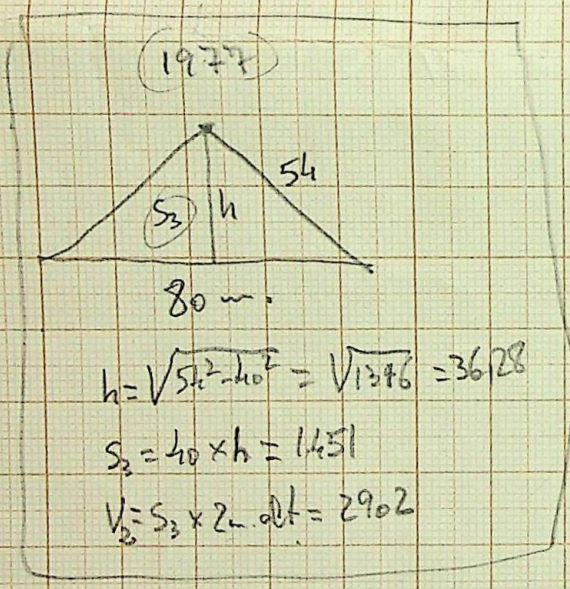 1977
54
S3 h
80 m.
h = √54²-40² = √1316 = 36,28
S3 = 40 × h = 1451
V3 = S3 × 2m. alt = 2902